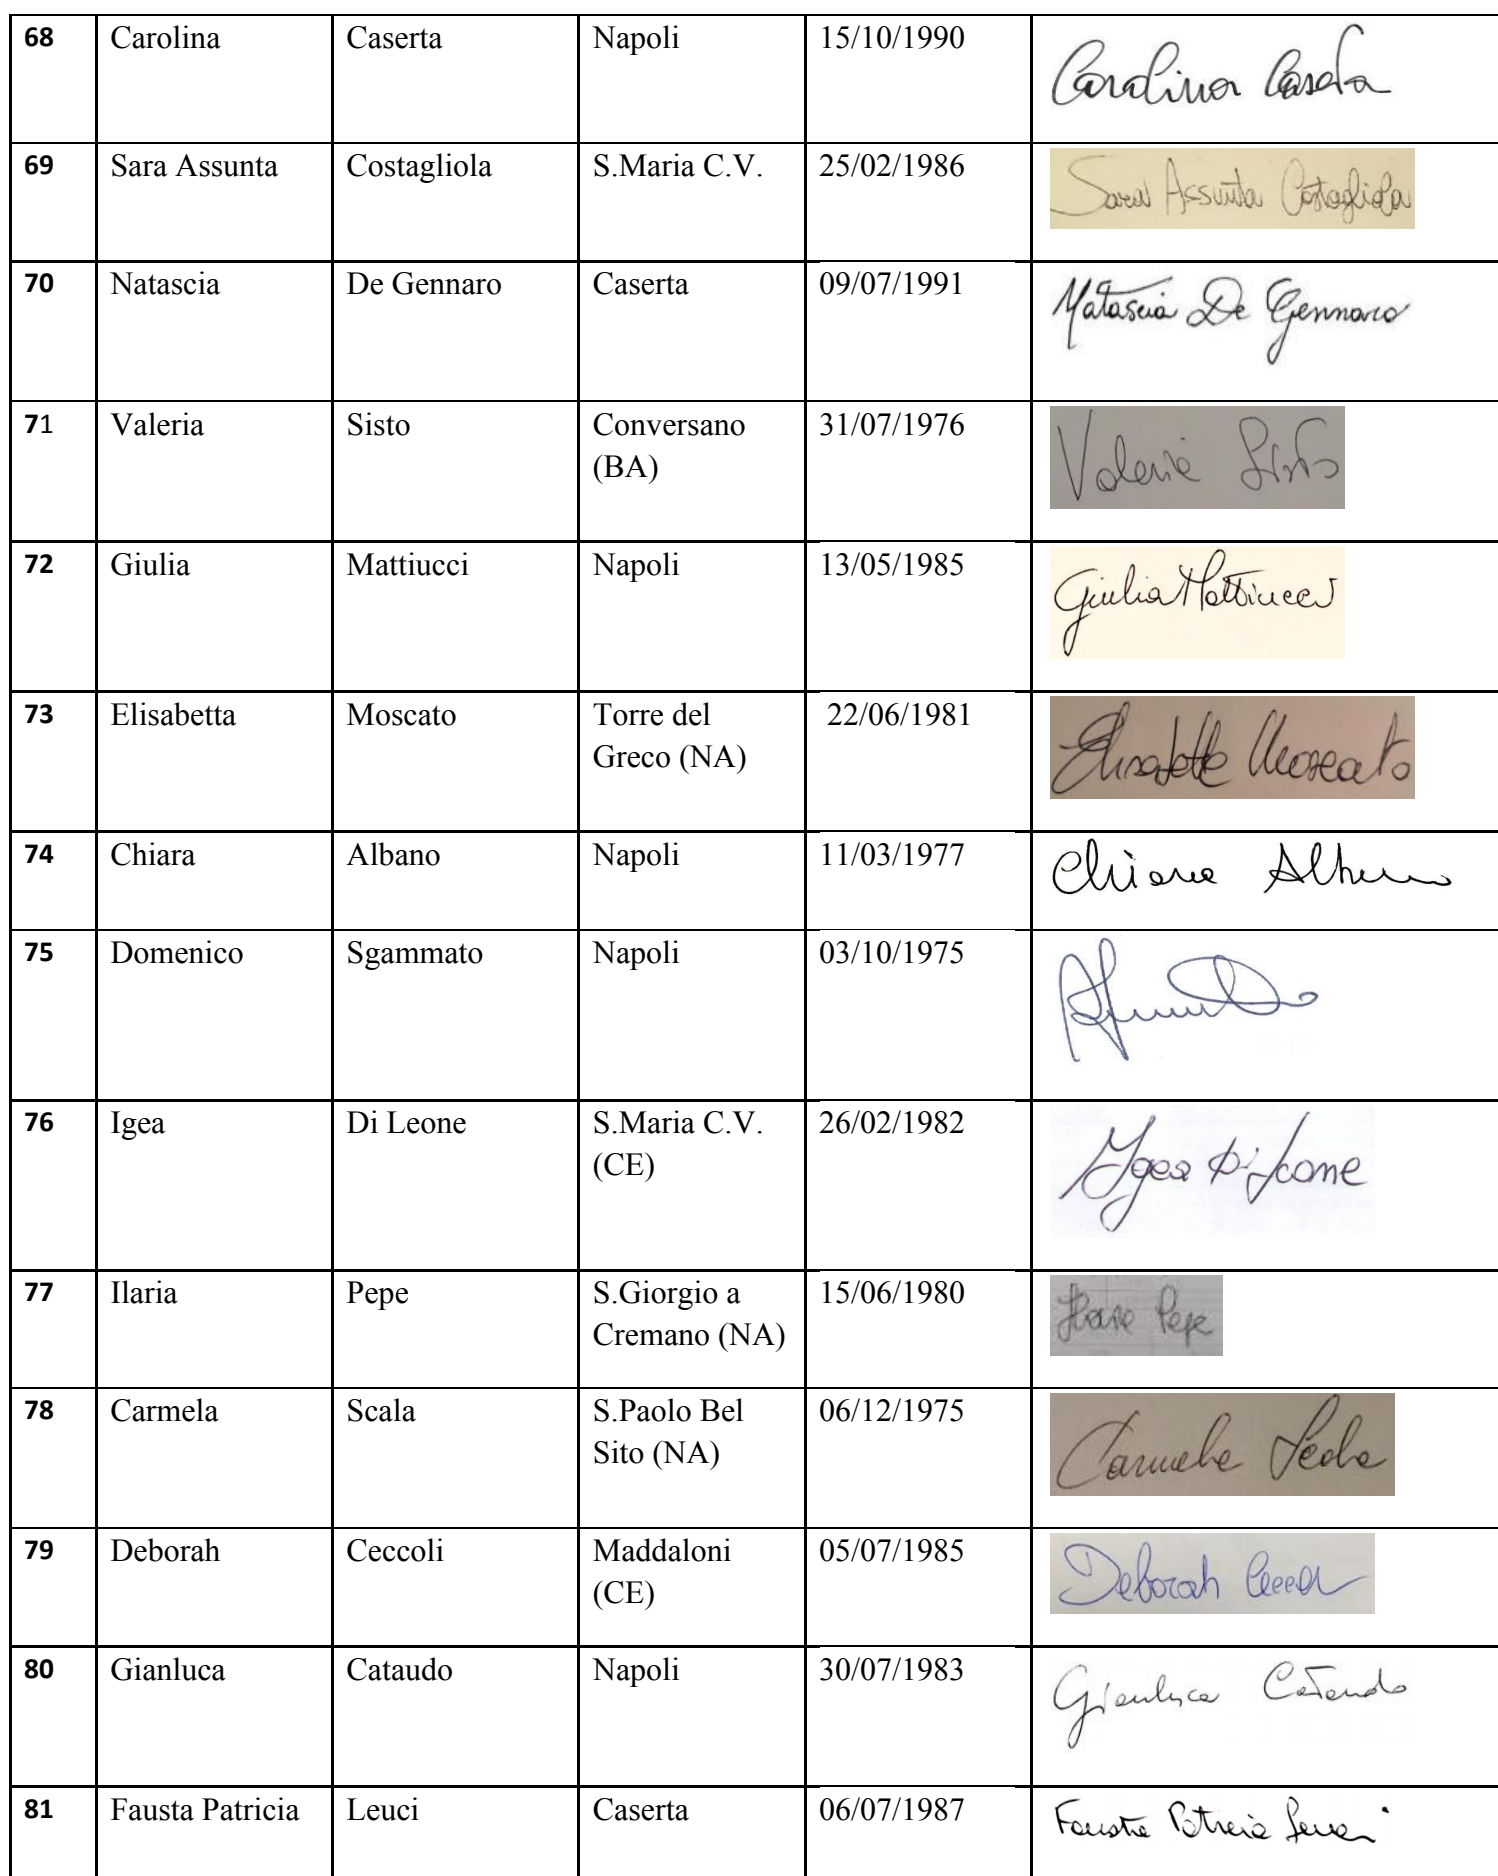 68 Carolina Caserta Napoli 15/10/1990 Carolina Caserta
69 Sara Assunta Costagliola S.Maria C.V. 25/02/1986 Sara Assunta Costagliola
70 Natascia De Gennaro Caserta 09/07/1991 Natascia De Gennaro
71 Valeria Sisto Conversano 31/07/1976 Valeria Sisto
(BA)
72 Giulia Mattiucci Napoli 13/05/1985 Giulia Mattiucci
73 Elisabetta Moscato Torre del 22/06/1981 Elisabetta Moscato
Greco (NA)
74 Chiara Albano Napoli 11/03/1977 Chiara Albano
75 Domenico Sgammato Napoli 03/10/1975
76 Igea Di Leone S.Maria C.V. 26/02/1982 Igea Di Leone
(CE)
77 Ilaria Pepe S.Giorgio a 15/06/1980 Ilaria Pepe
Cremano (NA)
78 Carmela Scala S.Paolo Bel 06/12/1975 Carmela Scala
Sito (NA)
79 Deborah Ceccoli Maddaloni 05/07/1985 Deborah Ceccoli
(CE)
80 Gianluca Cataudo Napoli 30/07/1983 Gianluca Cataudo
81 Fausta Patricia Leuci Caserta 06/07/1987 Fausta Patricia Leuci